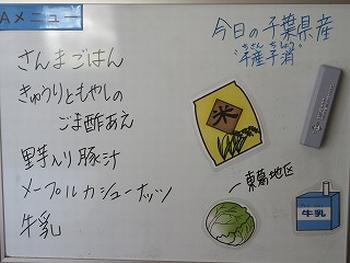 Aメニュー
さんまごはん
きゅうりともやしの
ごま酢あえ
里芋入り豚汁
メープルカシューナッツ
牛乳
今日の千葉県産
ちさん ちしょう
"千産千消"
米
東葛地区
牛乳